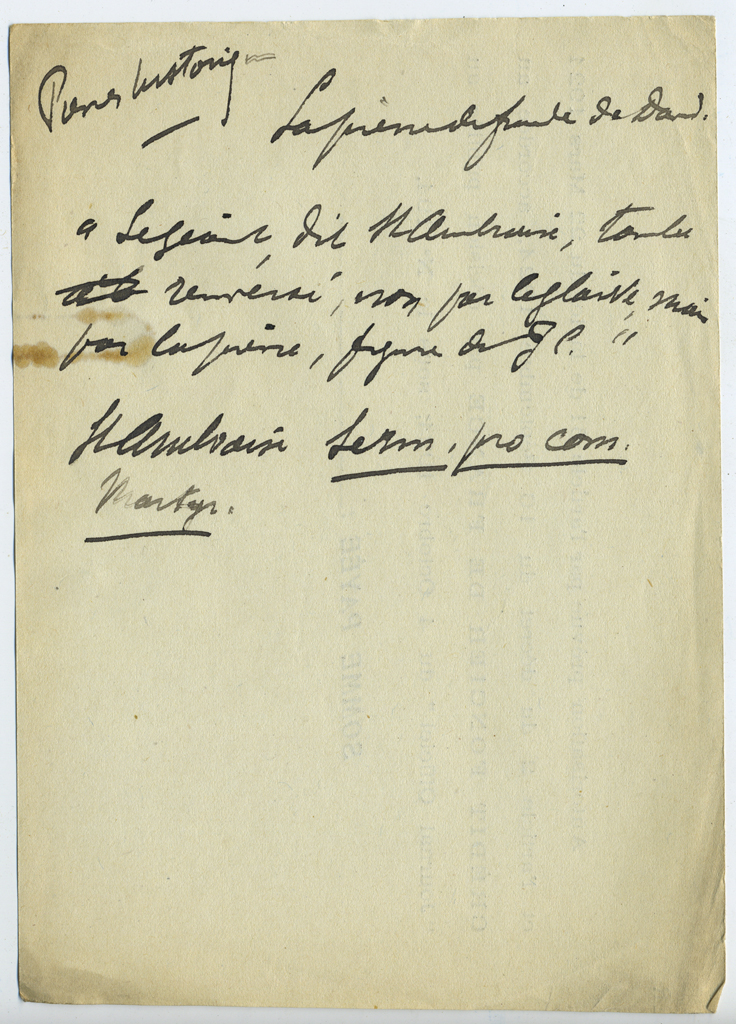 Pierres historiq
La pierre de fronde de David.
" Le géant, dit St Ambroise, tombe
renversé, non par le glaive, mais
par la pierre, figure de J C. "
St Ambroise Serm. pro com.
Martyr.